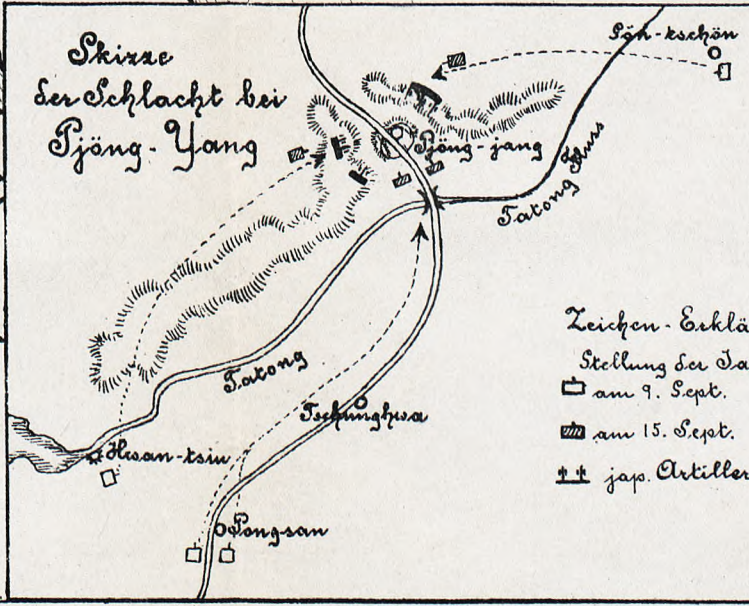 Skizze
der Schlacht bei
Pjöng-Yang
Pöh-tschön
Pjöng-jang
Tatong Fluss
Tatong
Tschunghwa
Hwan-tsiu
Pongsan
Zeichen-Erklä
Stellung der Ja
am 9. Sept.
am 15. Sept.
jap. Artiller